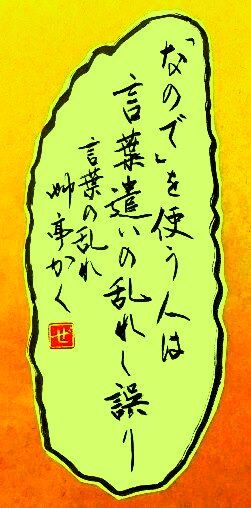 「なので」を使う人は
言葉遣いの乱れし誤り
言葉の乱れ
姉亭かく
ぜ